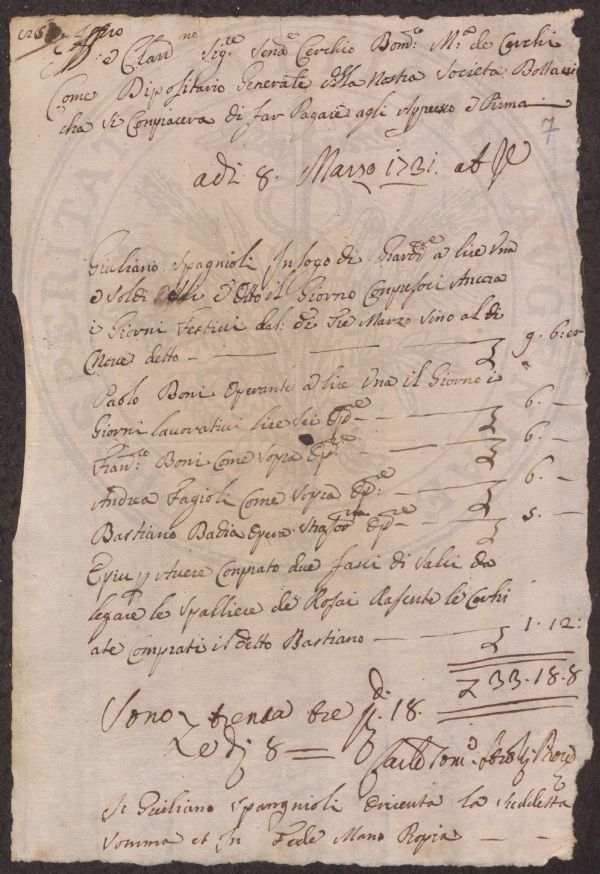 e Clarmo Sigre Senae Cerchio Bom: Ma de Cerchi
Come Dipositario Generale della Nostra Società Bottani
cha si Conpiacera di far Pagare agli Appresso e Prima
7
adi 8. Marzo 1731. ab Je
Giuliano Spagnioli In logo di a lire Una
e Soldi e detto il Giorno Conpresoci Ancora
i Giorni Festivi dal: di Tre Marzo sino al di
Nove detto - 9. 6:
Paolo Boni Operante a lire Una il Giorno i
Giorni lavorativi lire Sei - 6. -
Franco: Boni Come Sopra - 6. -
Andrea Fagioli Come Sopra - 6. -
Bastiano Badia Opera - 5. -
Epiu p Avere Conprato due fasci di Salci da
legare le Spalliere de Rosai Rasente le
ate Comprati il detto Bastiano - 1. 12:
33. 18. 8
Sono trenta tre 18.
e d 8 =
Io Giuliano Spangnioli la Suddetta
Somma et In Fede Mano Propia